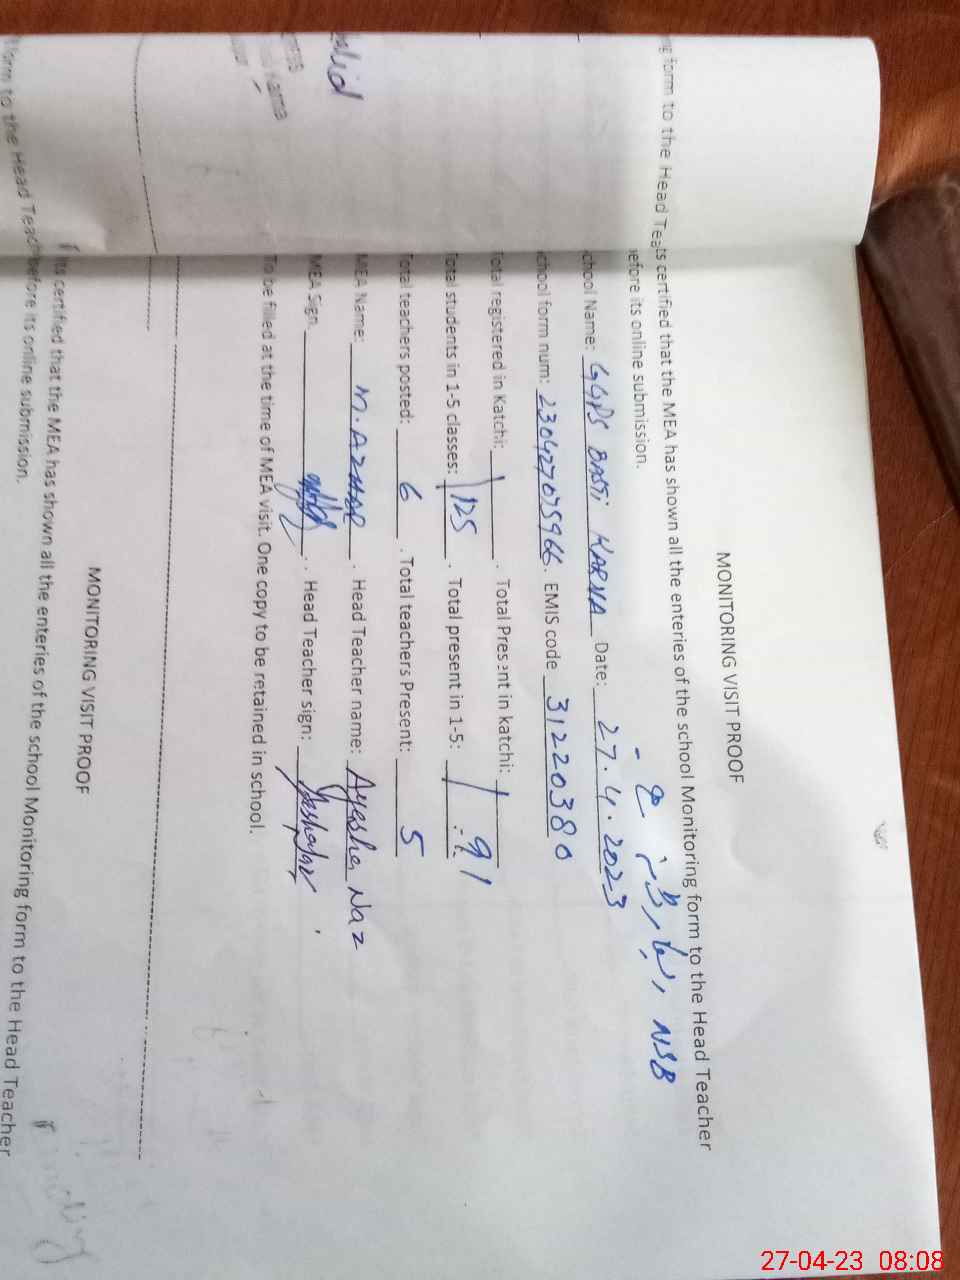 MONITORING VISIT PROOF
ts certified that the MEA has shown all the enteries of the school Monitoring form to the Head Teacher
efore its online submission.
NSB
chool Name: GGPS BASTi KARNA Date: 27.4.2023
chool form num: 230427075966. EMIS code 31220380
Total registered in Katchi: . Total Present in katchi:
Total students in 1-5 classes: 125 . Total present in 1-5: 91
Total teachers posted: 6 . Total teachers Present: 5
MEA Name: M. AZHAR . Head Teacher name: Ayesha Naz
MEA Sign. . Head Teacher sign:
To be filled at the time of MEA visit. One copy to be retained in school.
MONITORING VISIT PROOF
ts certified that the MEA has shown all the enteries of the school Monitoring form to the Head Teacher
before its online submission.
g form to the Head Tea
alid
form to the Head Teach
27-04-23 08:08